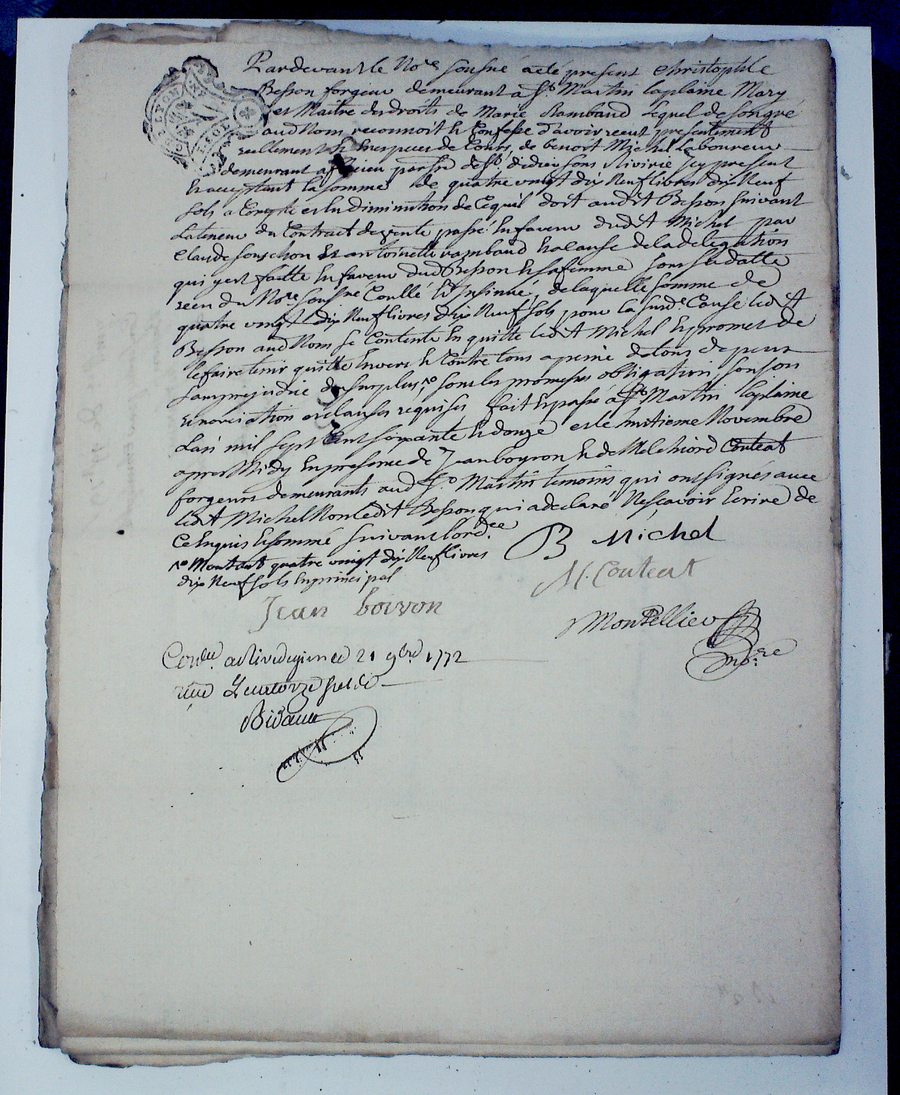 Pardevant le No.re sousné a eté present Christophle
Besson forgeur demeurant a St. Martin laplaine Mary
et Maitre des droits de Marie Rambaud lequel de son gré
aud Nom reconnoit et Confesse d'avoir receu presentement
reellement et en especes de Cours de benoit Michel laboureur
demeurant a parsse de St. didier sous Rivirie jcy present
et acceptant la somme de quatre vingt dix Neuf livres dix Neuf
sols a Compte et en diminution de Ce qu'il doit aud.t Besson suivant
la teneur du Contract de vente passé en faveur dud.t Michel par
Claude Souchon et antoinette rambaud et a Cause de la delegation
qui y est faitte en faveur dud Besson et sa femme sous sa datte
receu du No.re sousné Conllé et Insinué, de laquelle somme de
quatre vingt dix Neuf livres dix Neuf sols pour la susd.e Cause led.t
Besson aud Nom se Contente en quitte led.t Michel et promet de
le faire tenir quitte Envers et Contre tous a peine de tous depens
sans prejudice du surplus, sous les promesses obligation, soumson
renonciation et clauses requises fait et passé a St. Martin laplaine
L'an mil sept Cent soixante et douze et le huitieme Novembre
apres Midy En presence de Jean boyron et de Melchiord Couteat
forgeurs demeurants aud St. Martin temoins qui ont signés avec
led.t Michel Non led.t Besson qui a declaré Ne scavoir Ecrire de
Ce Enquis et sommé suivant lord.ce
Montant quatre vingt dix Neuf livres
dix Neuf sols En principal
B Michel
M. Couteat
Jean boivon
Montellier
No.re
Con.lé a Rivedegier le 21 9bre 1772
reçu quatorze sols